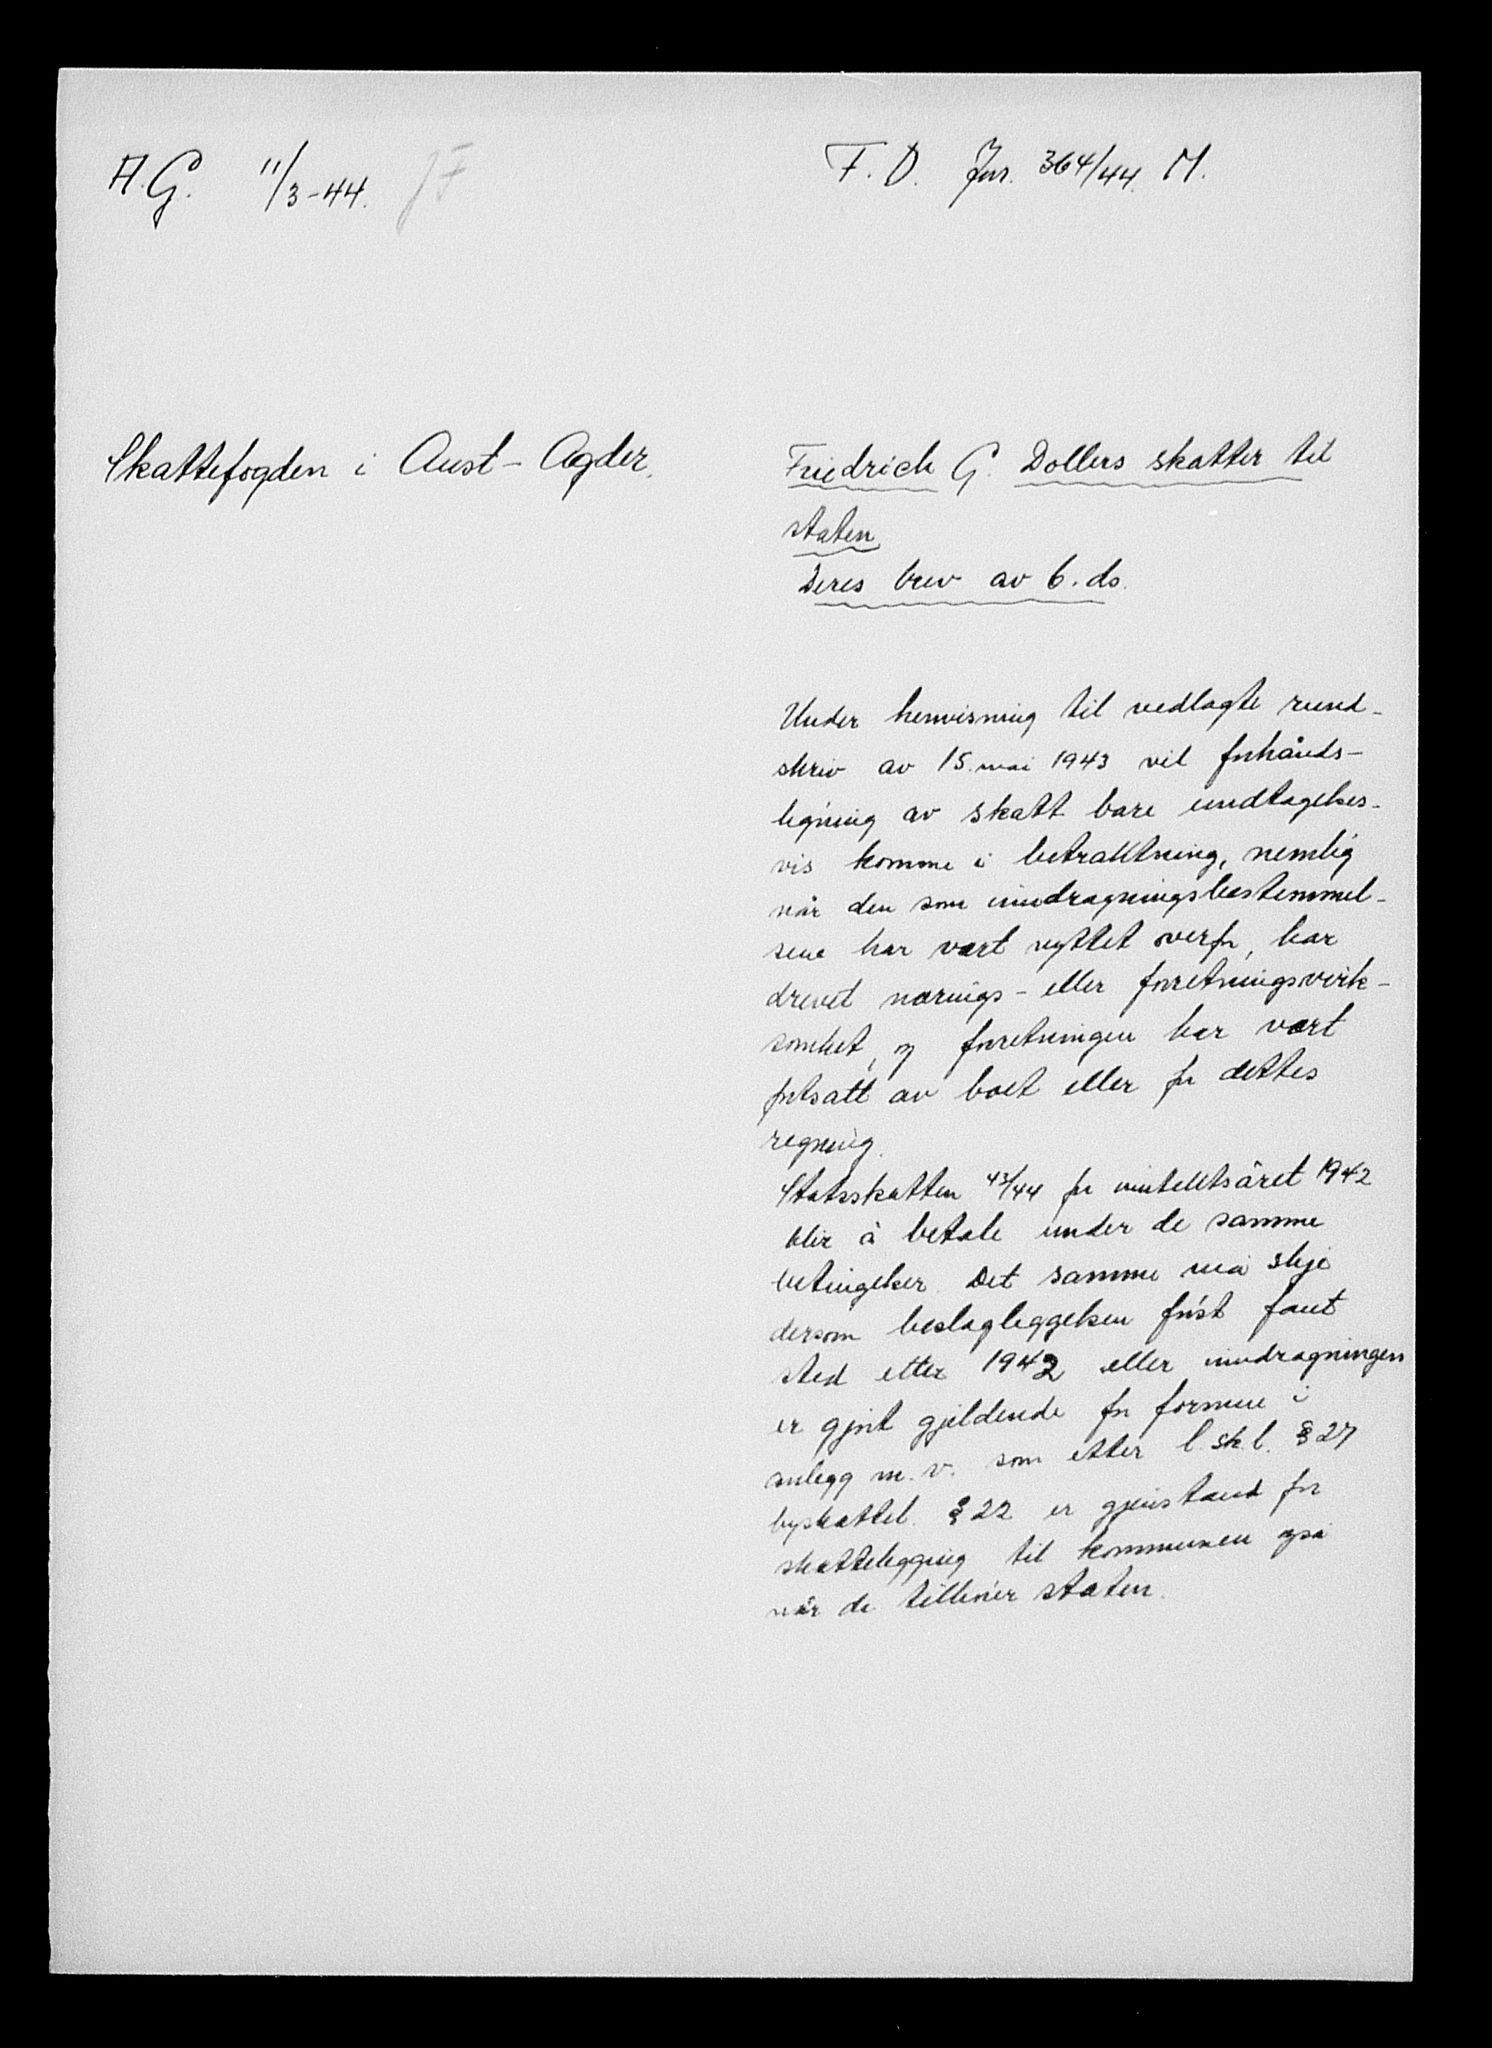 A.G. 11/3-44. JF
F. D. Jnr. 364/44. M.
Skattefogden i Aust-Agder.
Friedrich G. Dollers skatter til
staten
Deres brev av 6. ds.
Under henvisning til vedlagte rund-
skriv av 15. mai 1943 vil forhånds-
ligning av skatt bare undtagelses-
vis komme i betraktning, nemlig
når den som inndragningsbestemmel-
sene har vært nyttet overfor, har
drevet nærings- eller forretningsvirk-
somhet, og forretningen har vært
fortsatt av boet eller for dettes
regning.
Statsskatten 43/44 for inntektsåret 1942
blir å betale under de samme
betingelser. Det samme må skje
dersom beslagleggelsen først fant
sted etter 1942 eller inndragningen
er gjort gjeldende for formue i
anlegg m. v. som etter l. sk. l. § 27
byskattel. § 22 er gjenstand for
skattelegging til kommunen også
når de tilhører staten.